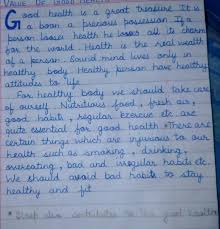 VALUE OF GOOD HEALTH
Good health is a great treasure It is
a boon a precious possession If a
person loses health he loses all its charm
for the world. Health is the real wealth
of a person. Sound mind lives only in
healthy body. Healthy person have healthy
attitudes to life
For healthy body we should take care
of ourself. Nutritious food, fresh air,
good habits, regular exercise etc. are
quite essential for good health. There are
certain things which are injurious to our
health such as smoking, drinking,
overeating, bad and irregular habits etc.
We should avoid bad habits to stay
healthy and fit
* Sleep also contributes to good health